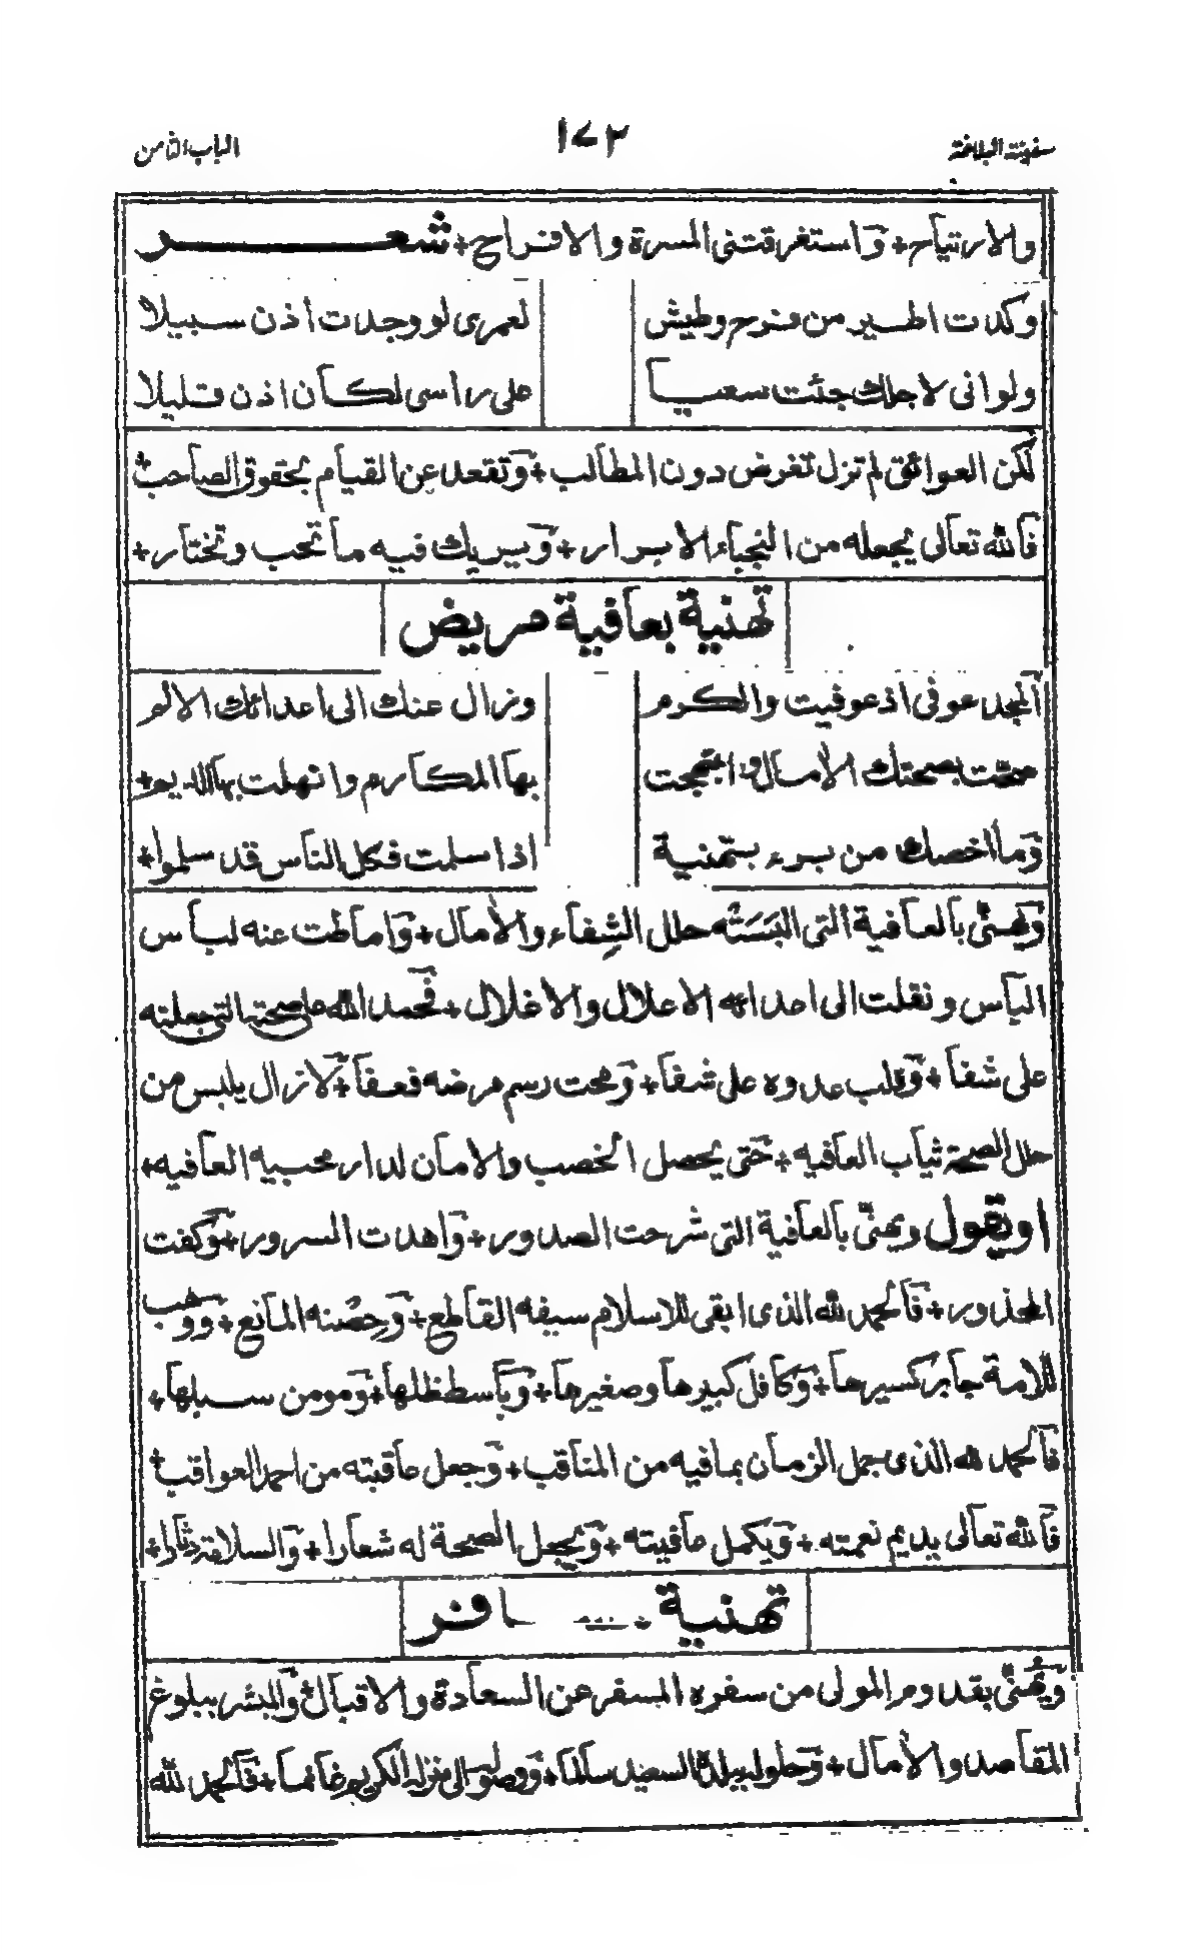 سفينة البلاغة ١٧٢ الباب الثامن
والارتياح + وَاستغرقتنى المسرة والافراح + شعر
وكدت اطير من فرح وطيش لعمرى لو وجدت اذن سبيلا
ولو انى لاجلك جئت سعيا على راسى لكان اذن قليلا
لكن العوائق لم تزل تغرض دون المطالب + وَتقعد عن القيام بحقوق الصاحب +
فالله تعالى يجعله من النجباء الابرار + وَيريك فيه ما تحب وتختار +
تهنية بعافية مريض
اَلمجد عوفى اذ عوفيت والكرم وزال عنك الى اعدائك الالم
صحّت بصحتك الامال وابتهجت بها المكارم وانهلت بها الديم +
وَما اخصك من برء بتهنية اذا سلمت فكل الناس قد سلموا +
وَيهنّى بالعافية التى اَلبَسَتْه حلل الشِفاء والاَمال + وَاماطت عنه لباس
الياس ونقلت الى اعدائه الاعلال والاغلال + فَحمد الله على صحته التى جعلته
على شفا + وَقلب عدوه على شفا + وَمحت رسم مرضه فعفا + لَازال يلبس من
حلل الصحة ثياب العافيه + حَتى يحصل الخصب والامان لدار محبيه العافيه +
اويقول ويهنّى بالعافية التى شرحت الصدور + وَاهدت السرور + وَكفت
المحذور + فَالحمد لله الذى ابقى للاسلام سيفه القاطع + وَحِصْنه المانع + وَوهب
للامة جابر كسيرها + وَكافل كبيرها وصغيرها + وَباسط ظلها + وَمومن سبلها +
فَالحمد لله الذى جمل الزمان بما فيه من المناقب + وَجعل عاقبته من احمد العواقب +
فَالله تعالى يديم نعمته + وَيكمل عافيته + وَيجعل الصحة له شعارا + وَالسلامة دثارا +
تهنية مسافر
وَيهنّى بقدوم المولى من سفره المسفر عن السعادة والاقبال + وَالمبشر ببلوغ
المقاصد والاَمال + وَحلوله ببلده السعيد سالما + وَوصوله الى منزله الكريم غانما + فَالحمد لله